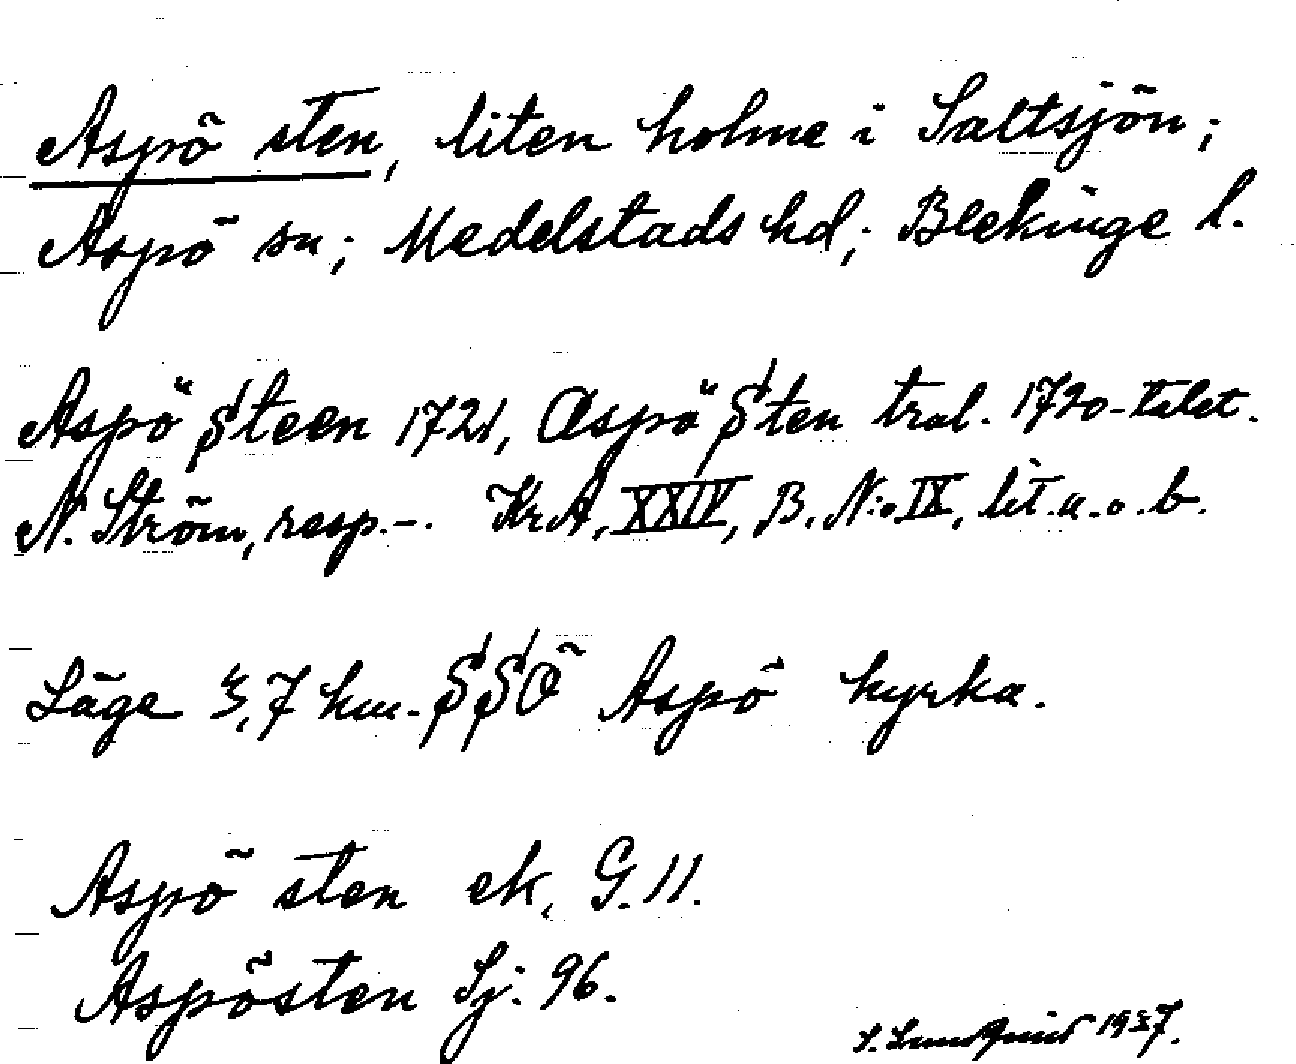 Aspö sten, liten holme i Saltsjön;
Aspö sn; Medelstads hd; Blekinge l.
Aspö Steen 1721, Aspö Sten trol. 1720-talet.
N. Ström, resp. –. KrA, XXIV, B. N:o IX, lit. a. o. b.
Läge 3,7 km. SSO Aspö kyrka.
Aspö sten ek. G. 11.
Aspösten Sj. 96.
S. Lundquist 1937.